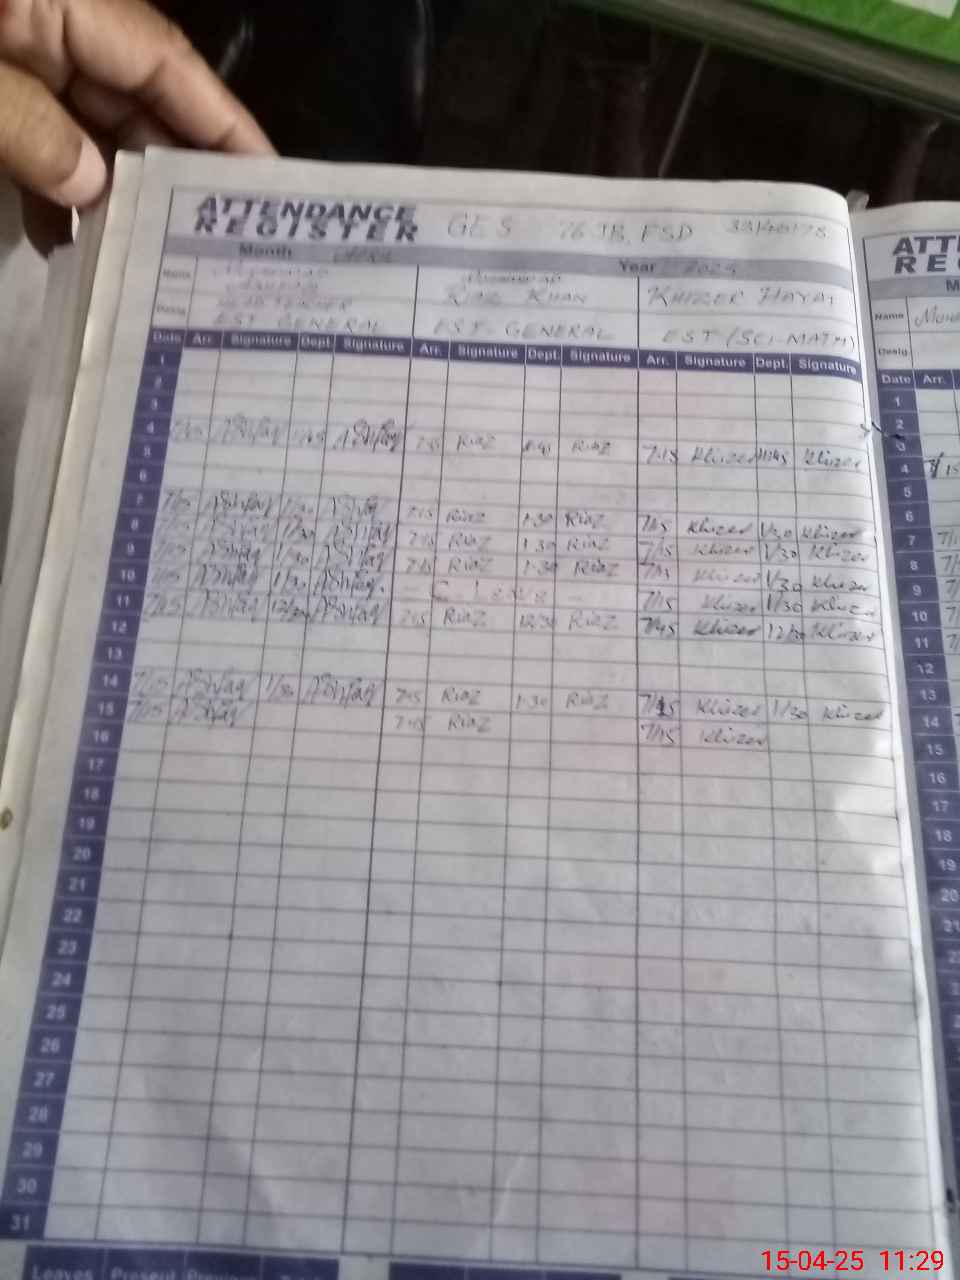 ATTENDANCE
REGISTER GES 76 JB, FSD
Month April Year 2025
Name Muhammad Muhammad
Ashfaq RIAZ KHAN KHIZER HAYAT
HEAD TEACHER
Desig. EST GENERAL EST- GENERAL EST (SCI-MATH)
Date Arr. Signature Dept. Signature Arr. Signature Dept. Signature Arr. Signature Dept. Signature
1
2
3
4 7/15 AShfaq AShfaq RiaZ RiaZ 7:15 Khizer 11:45 Khizer
5
6
7 7/15 AShfaq 1/30 AShfaq 7:15 RiaZ 1:30 RiaZ 7/15 Khizer 1/30 Khizer
8 7/15 AShfaq 1/30 AShfaq 7:15 RiaZ 1:30 RiaZ 7/15 Khizer 1/30 Khizer
9 7/15 AShfaq 1/30 AShfaq 7:15 RiaZ 1:30 RiaZ 7/15 Khizer 1/30 Khizer
10 7/15 AShfaq 1/30 AShfaq. - C. Leave - 7/15 Khizer 1/30 Khizer
11 7/15 AShfaq 12/30 AShfaq 7:15 RiaZ 12/30 RiaZ Khizer 12/30 Khizer
12
13
14 7/15 AShfaq 1/30 AShfaq 7:15 RiaZ 1:30 RiaZ 7/15 Khizer 1/30 Khizer
15 7/15 AShfaq 7:15 RiaZ 7/15 Khizer
16
17
18
19
20
21
22
23
24
25
26
27
28
29
30
31
Leaves Present
ATT
RE
M
Name
Desig.
Date Arr.
1
2
3
4
5
6
7
8
9
10
11
12
13
14
15
16
17
18
19
20
21
15-04-25 11:29